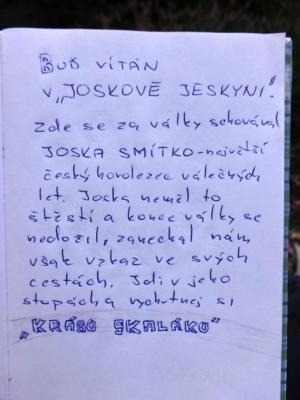 BUĎ VÍTÁN
V „JOSKOVĚ JESKYNI".
Zde se za války schovával
JOSKA SMÍTKO - největší
český horolezec válečných
let. Joska neměl to
štěstí a konce války se
nedožil, zanechal nám
však vzkaz ve svých
cestách. Jdi v jeho
stupách a vychutnej si
„KRÁSU SKALÁKU"